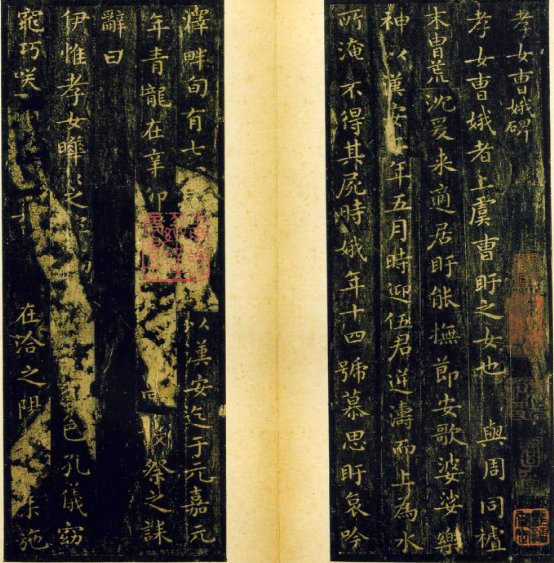 孝女曹娥碑
孝女曹娥者上虞曹盱之女也 其先與周同祖
末胄荒沈爰来適居盱能撫節安歌婆娑樂
神以漢安年五月時迎伍君逆濤而上為水
所淹不得其屍時娥年十四號慕思盱哀吟
澤畔旬有七 以漢安迄于元嘉元
年青龍在辛卯 祭之誄
辭曰
伊惟孝女曄之 色孔儀窈
窕巧咲 在洽之陽 施